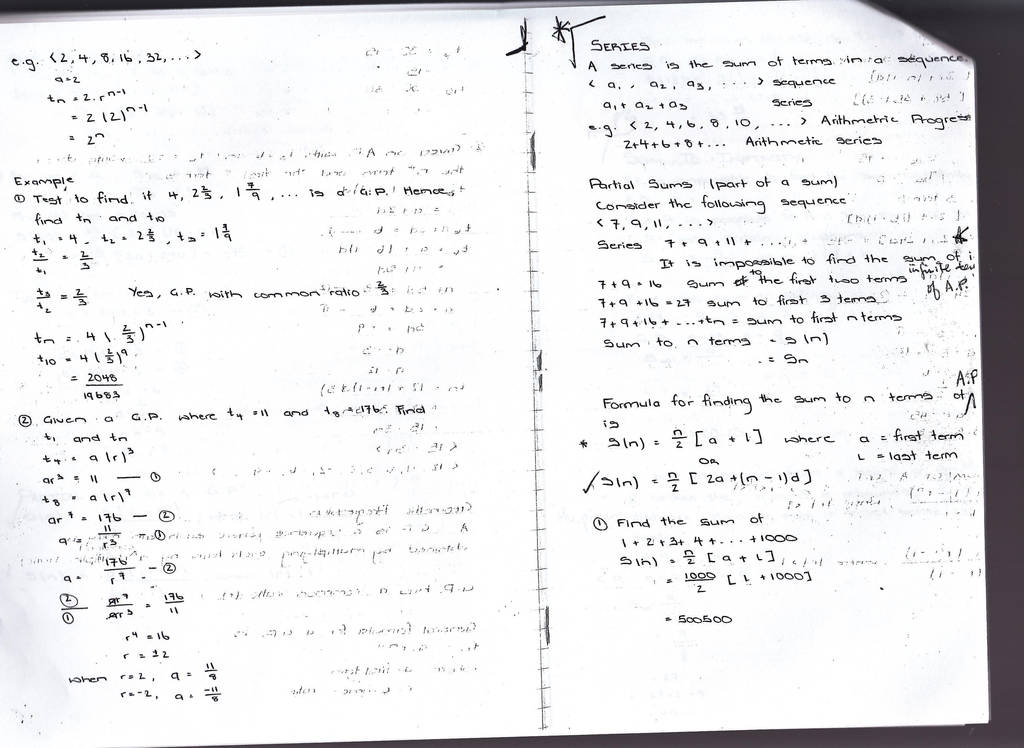 e.g. < 2, 4, 8, 16, 32, ... >
a = 2
tn = 2. r^n-1
= 2 (2)^n-1
= 2^n
Example
① Test to find if 4, 2 2/3, 1 7/9, ... is a G.P. Hence
find tn and t10
t1 = 4, t2 = 2 2/3, t3 = 1 7/9
t2/t1 = 2/3
t3/t2 = 2/3 Yes, G.P. with common ratio 2/3
tn = 4 (2/3)^n-1
t10 = 4 (2/3)^9
= 2048/19683
② Given a G.P. where t4 = 11 and t8 = 176. Find
t1 and tn
t4 = a(r)^3
ar^3 = 11 — ①
t8 = a(r)^7
ar^7 = 176 — ②
a = 11/r^3 — ①
a = 176/r^7 — ②
②/① ar^7/ar^3 = 176/11
r^4 = 16
r = ±2
when r = 2, a = 11/8
r = -2, a = -11/8
* SERIES
A series is the sum of terms in a sequence.
< a1, a2, a3, .... > sequence
a1 + a2 + a3 series
e.g. < 2, 4, 6, 8, 10, ... > Arithmetric Progress
2+4+6+8+... Arithmetic series
Partial Sums (part of a sum)
Consider the following sequence
< 7, 9, 11, ... >
Series 7 + 9 + 11 + ....
It is impossible to find the sum of i
infinite
7 + 9 = 16 Sum to the first two terms of A.P.
7 + 9 + 16 = 27 sum to first 3 terms
7 + 9 + 16 + ... + tn = sum to first n terms
Sum to n terms = S(n)
= Sn
Formula for finding the sum to n terms of A.P
is
* S(n) = n/2 [a + L] where a = first term
OR L = last term
✓ S(n) = n/2 [2a + (n - 1)d]
① Find the sum of
1 + 2 + 3 + 4 + ... + 1000
S(n) = n/2 [a + L]
= 1000/2 [1 + 1000]
= 500500